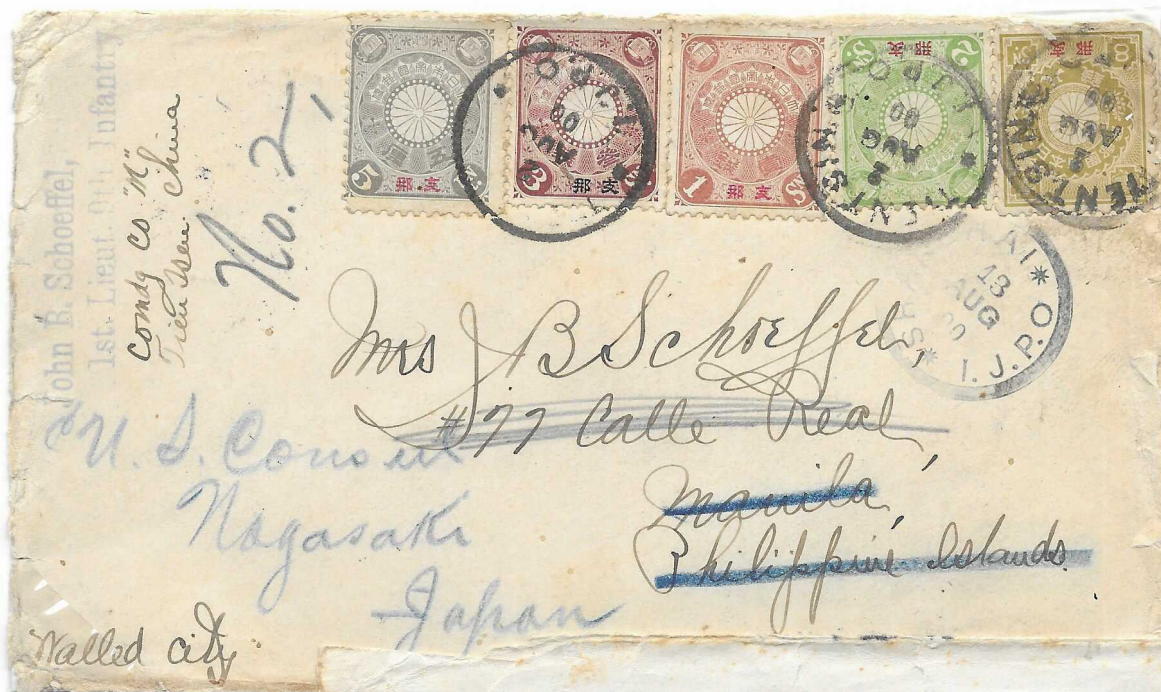 John B. Schoeffel,
1st. Lieut. 9th Infantry
Comdg Co "M"
Tien Tsin China
No. 2
5
3
支那
1
支那
2
支那
支那
I.J.P.O.
AUG
I.J.P.O.
TIENTSIN
2
AUG
00
I.J.P.O.
TIENTSIN
2
AUG
00
SHANGHAI
13
AUG
00
I.J.P.O.
Mrs J B Schoeffel,
#77 Calle Real,
Manila,
Philippine Islands.
U. S. Consul
Nagasaki
Japan
Walled City